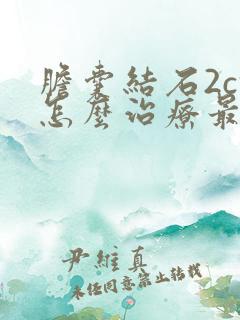 膽囊結石2c
怎麼治療最
尹維真
未經同意禁止轉載